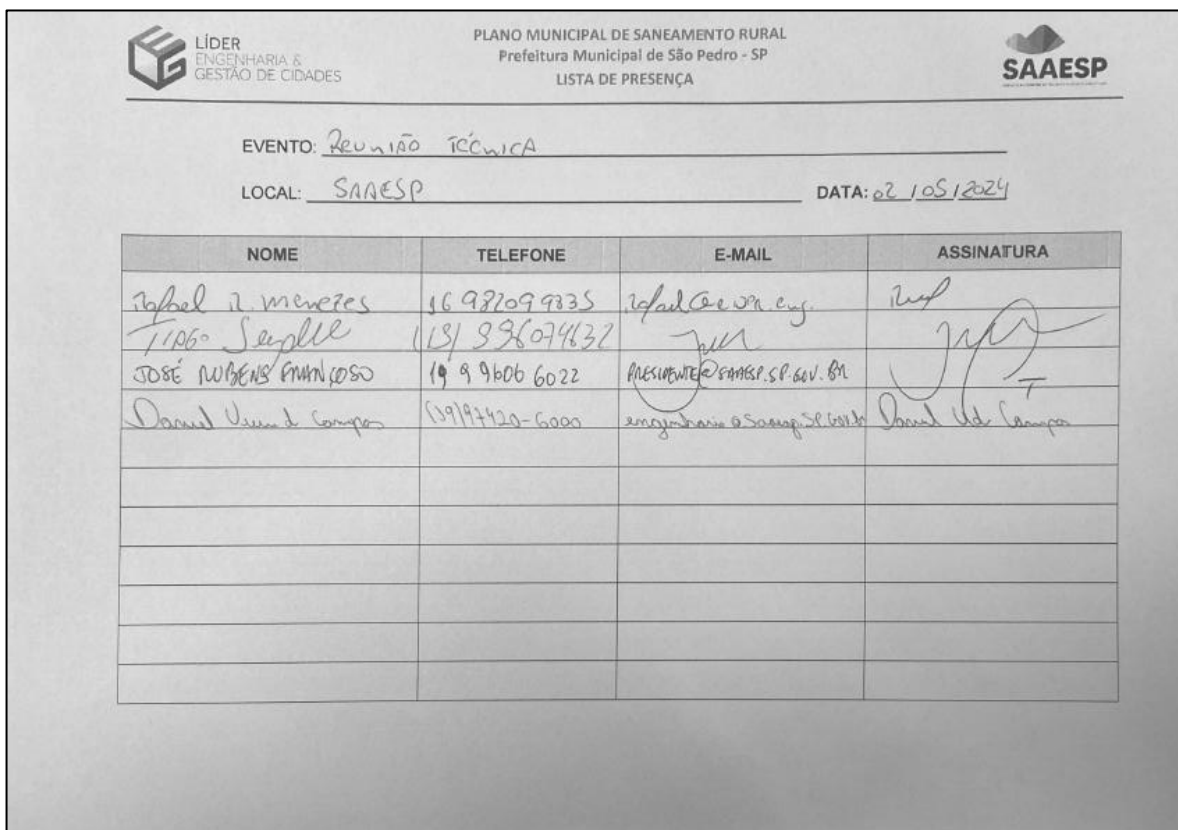 LÍDER
ENGENHARIA &
GESTÃO DE CIDADES
PLANO MUNICIPAL DE SANEAMENTO RURAL
Prefeitura Municipal de São Pedro - SP
LISTA DE PRESENÇA
SAAESP
EVENTO: REUNIÃO TÉCNICA
LOCAL: SAAESP DATA: 02/05/2024
NOME TELEFONE E-MAIL ASSINATURA
Rafael R. Menezes 16 982099835
Tiago
JOSÉ RUBENS FRANÇOSO 19 9 9606 6022 PRESIDENTE@SAAESP.SP.GOV.BR
Daniel Campos (19)97420-6000 engenharia@saaesp.sp.gov.br Daniel Campos